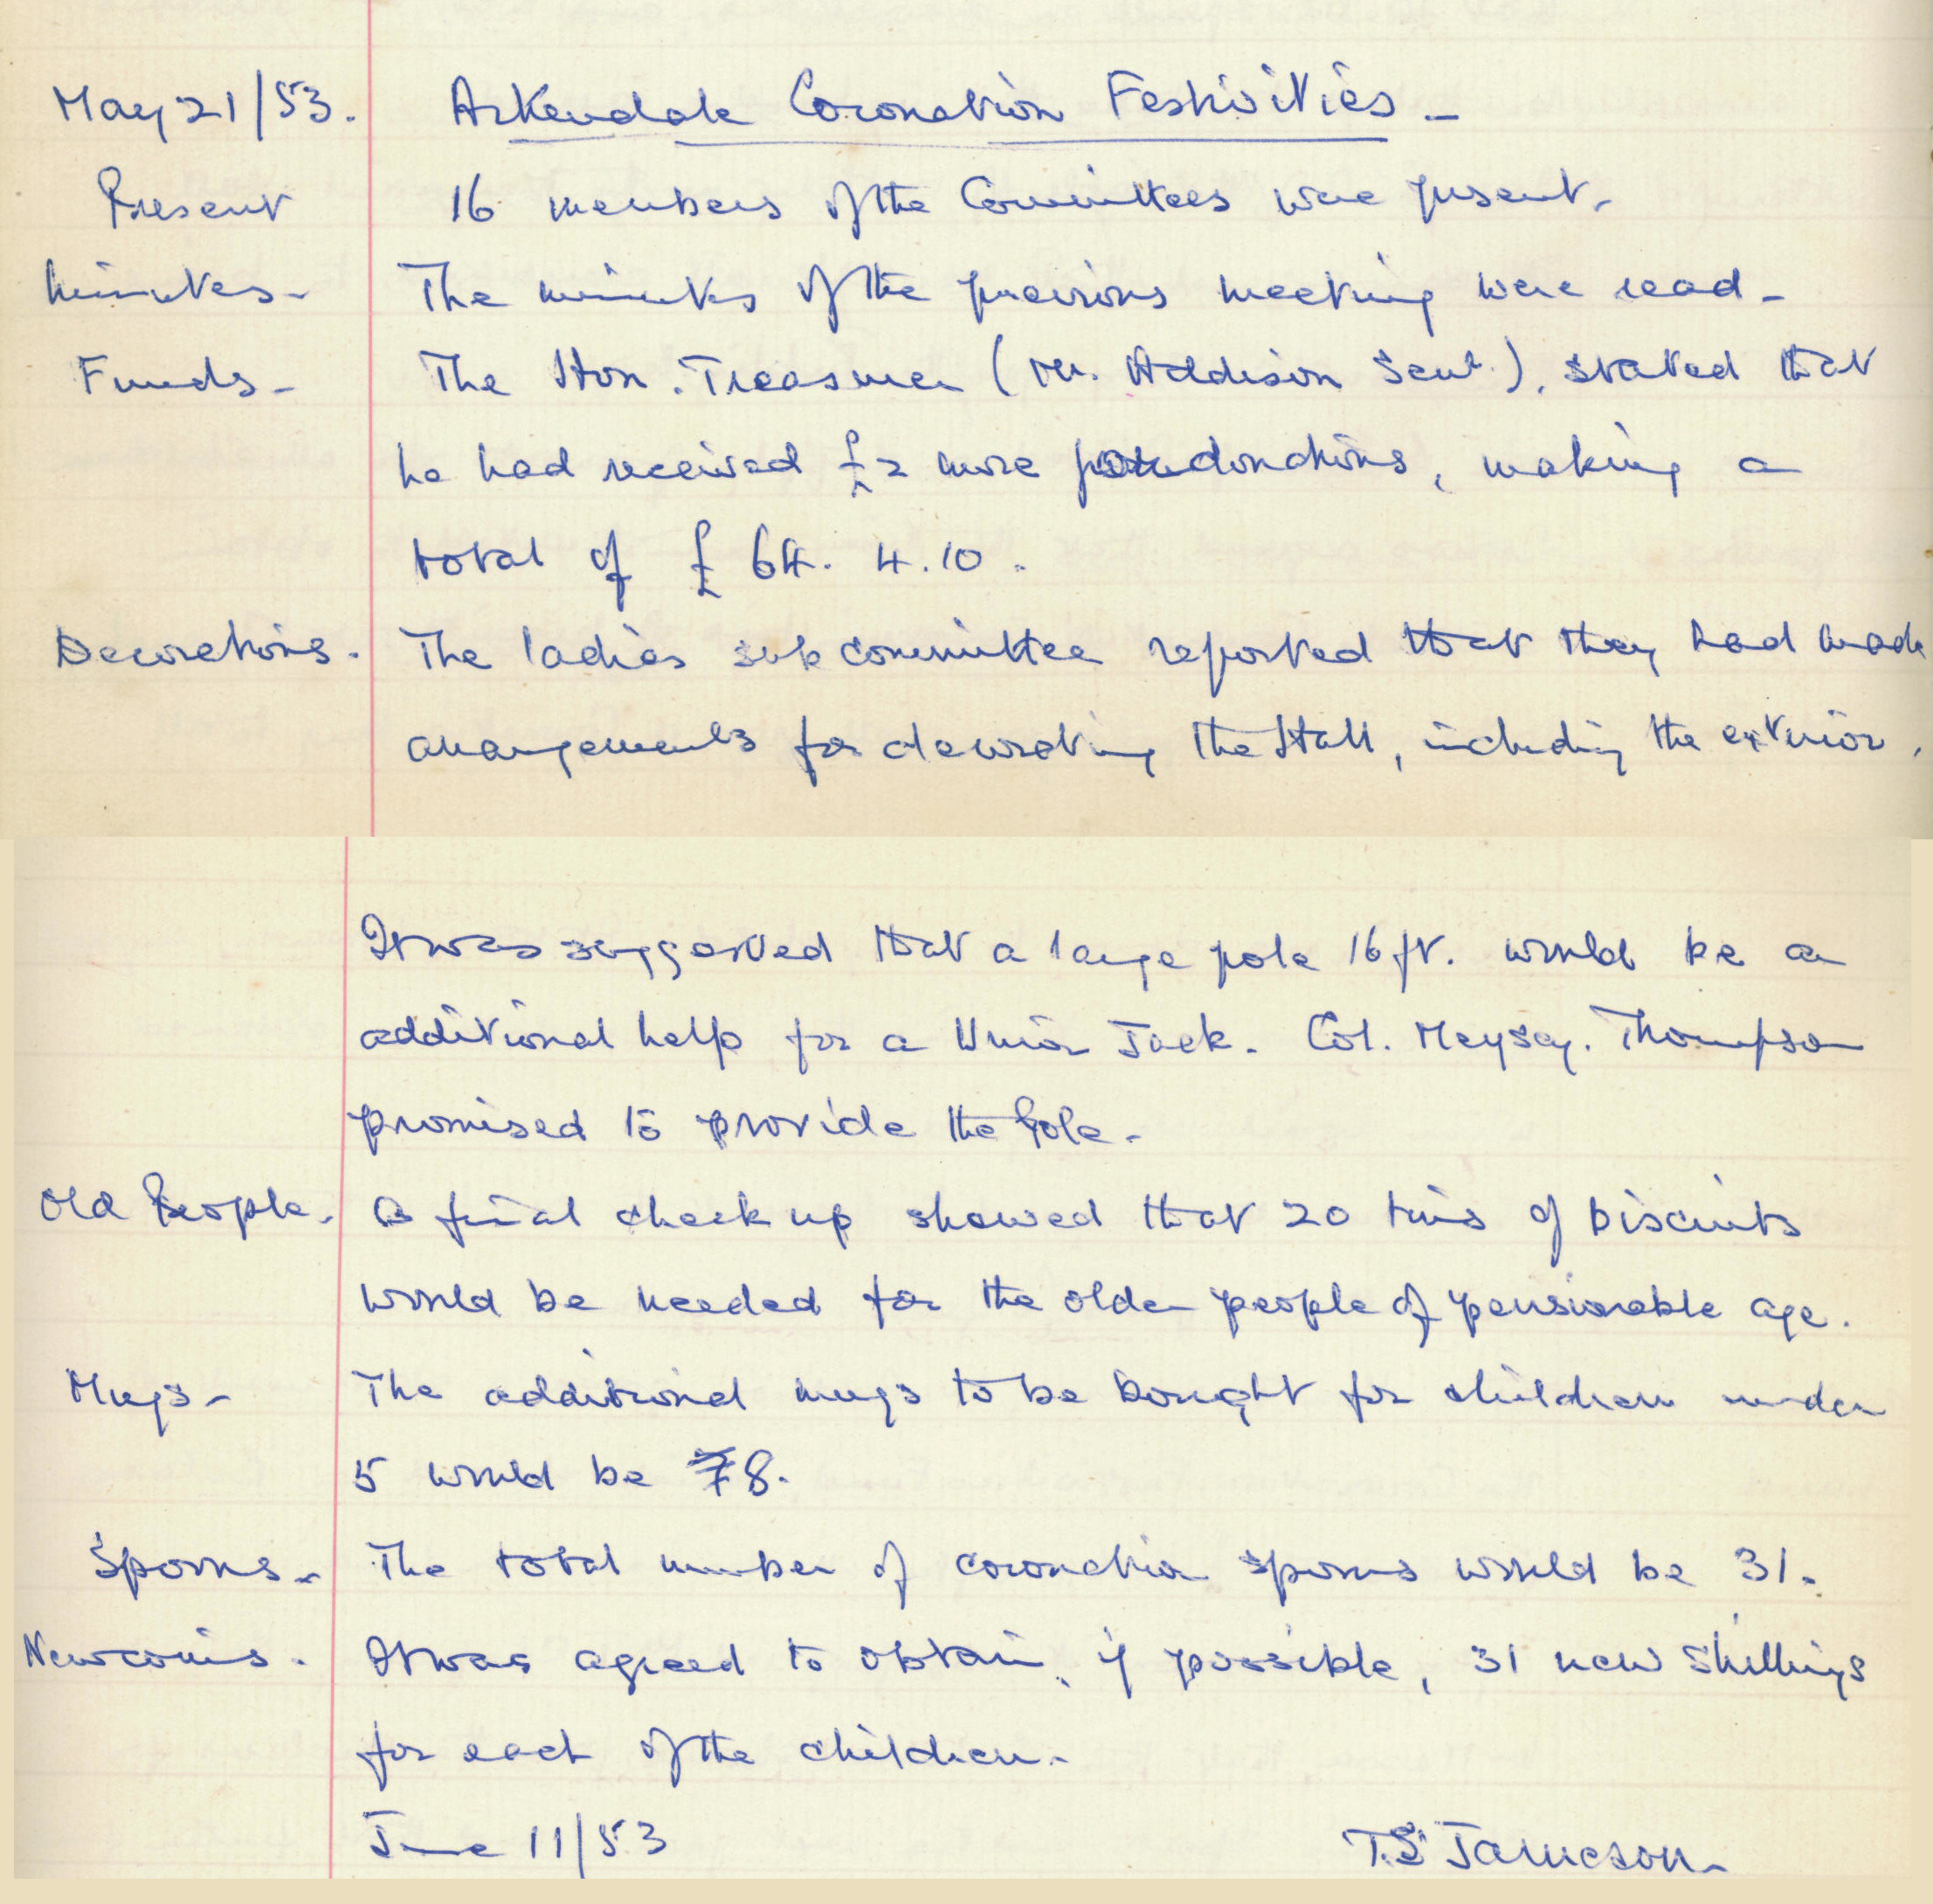 May 21/53. Arkendale Coronation Festivities -
Present 16 members of the Committees were present.
Minutes - The minutes of the previous meeting were read -
Funds - The Hon. Treasurer (Mr. Addison Senr.), stated that
he had received £2 more donations, making a
total of £64. 4. 10.
Decorations. The ladies sub committee reported that they had made
arrangements for decorating the Hall, including the exterior.
It was suggested that a large pole 16 ft. would be a
additional help for a Union Jack. Col. Meysey. Thompson
promised to provide the Pole -
Old People. A final check up showed that 20 tins of biscuits
would be needed for the older people of pensionable age.
Mugs - The additional mugs to be bought for children under
5 would be 7 8.
Spoons - The total number of coronation spoons would be 31.
New coins. It was agreed to obtain, if possible, 31 new shillings
for each of the children -
June 11/53 T.S Jameson